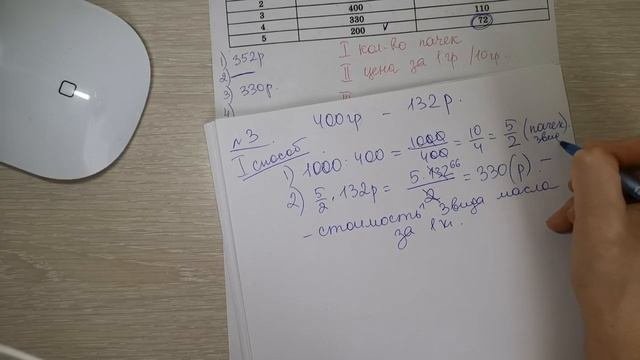 2
3 400 110
4 330 72
5 200
1) 352р
2)
3) 330р.
4)
I кол-во пачек
II цена за 1гр /10гр...
III
400гр - 132р.
№3.
I способ.
1) 1000 : 400 = 1000/400 = 10/4 = 5/2 (пачек) 3вида
2) 5/2 · 132р = 5·132 66/2 1 = 330(р). -
- стоимость 3вида масла
за 1кг.